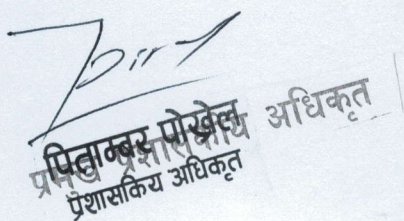 पिताम्बर पोखेल
प्रमुख प्रशासकीय अधिकृत
प्रशासकिय अधिकृत